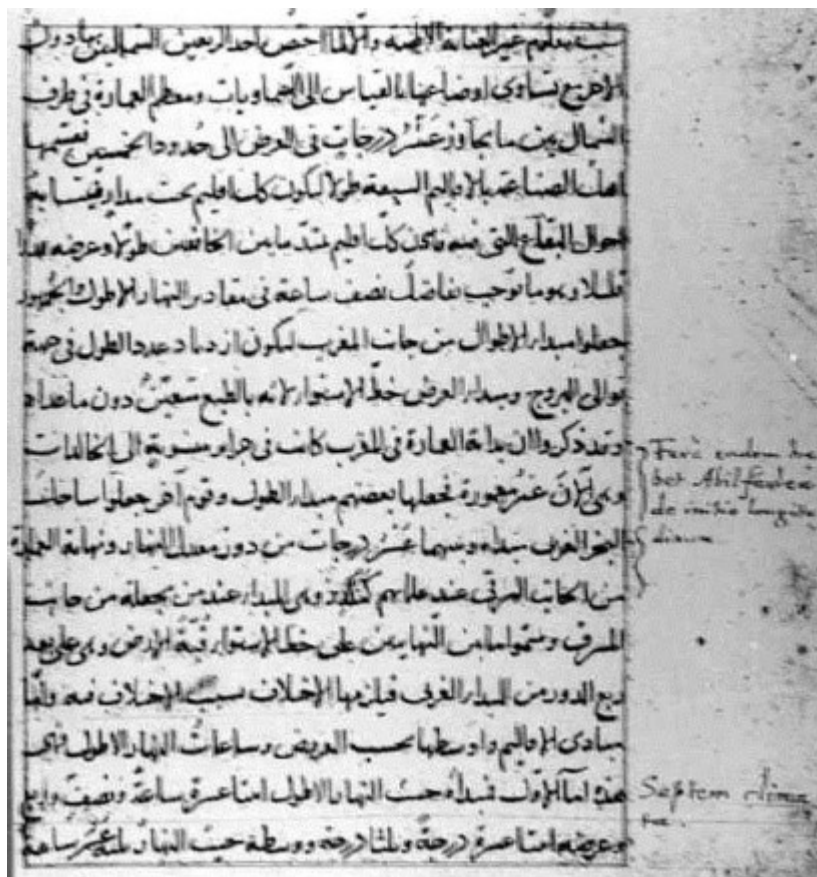 سبب معلوم غير العناية الالهية والا لما اختص باحد الربعين الشماليين بها دون
الاخر مع تساوى اوضاعها بالقياس الى السماويات ومعظم العمارة فى طرف
الشمال بين ما يجاوز عشر درجات فى العرض الى حدود الخمسين فقسمها
اهل الصناعة بالاقاليم السبعة طولا ليكون كل اقليم تحت مدار فيتشابه
احوال البقاع التى فيه فاذن كل اقليم يمتد ما بين الخافقين طولا وعرضه قدرا
قليلا وهو ما يوجب تفاضل نصف ساعة فى مقادير النهار الاطول والجمهور
جعلوا مبدأ الاطوال من جانب المغرب ليكون ازدياد عدد الطول فى جهة
توالى البروج ومبدأ العرض خط الاستواء لانه بالطبع متعين دون ما عداه
وقد ذكروا ان بداية العمارة فى المغرب كانت فى جزاير منسوبة الى الخالدات
وهى الان غير معمورة فجعلها بعضهم مبدأ الطول وقوم آخر جعلوا ساحل
البحر الغربى مبدأه وبينهما عشر درجات من دور معدل النهار ونهاية العمارة
من الجانب الشرقى عند علمائهم كنكدز وهى المبدأ عند من يجعله من جانب
المشرق وسموا ما بين النهايتين على خط الاستواء قبة الارض وهى على بعد
ربع الدور من المبدأ الغربى فيلزمها الاختلاف بسبب الاختلاف فيه واما
مبادى الاقاليم واوسطها بحسب العروض وساعات النهار الاطول فهى
هذه اما الاول فمبدأه حيث النهار الاطول اثنا عشرة ساعة ونصف وربع
وعرضه اثنتا عشرة درجة وثلثا درجة ووسطه حيث النهار ثلثة عشر ساعة
Feré eadem ha
bet Abilfedea
de initio longitu
dinum
Septem clima
ta.